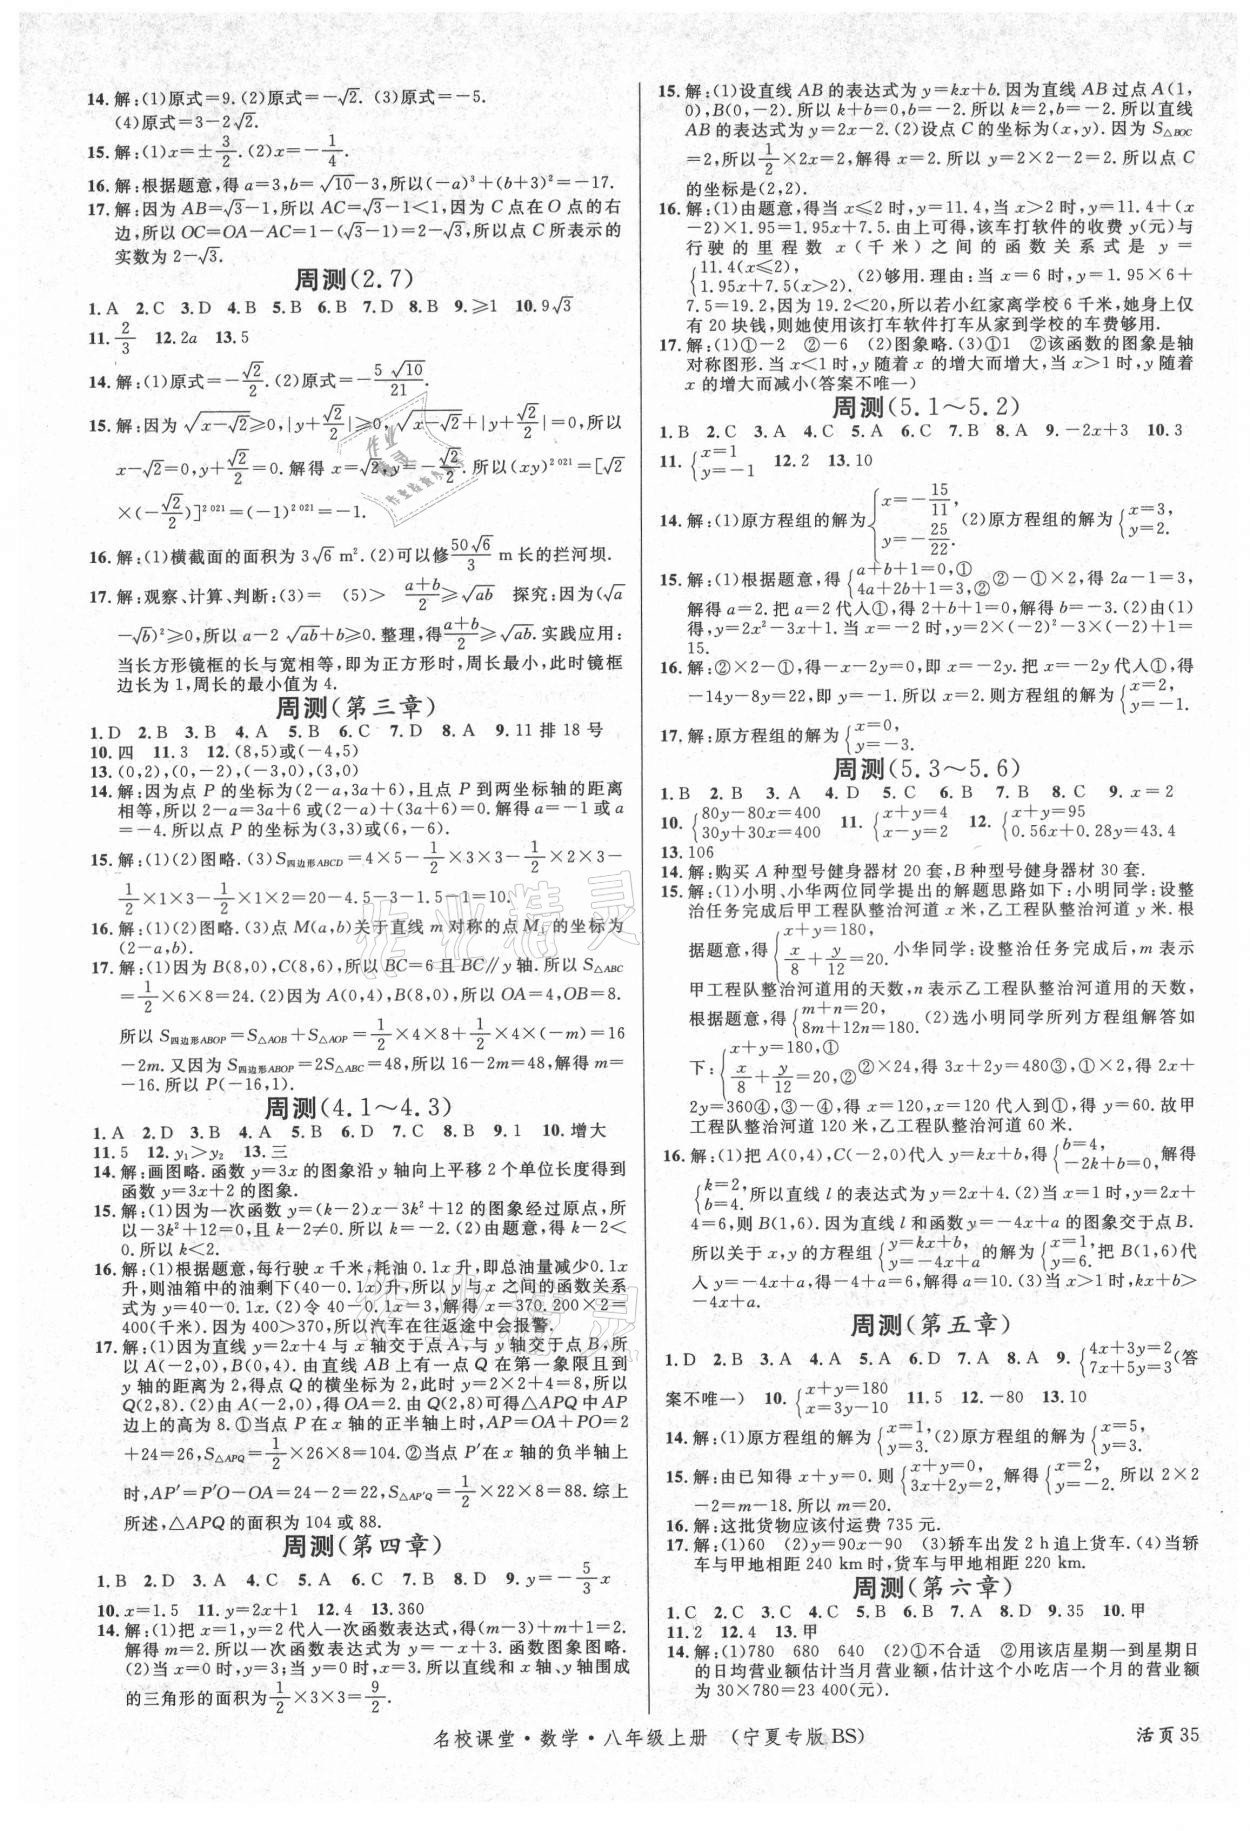 14. 解:(1)原式=9. (2)原式=-√2. (3)原式=-5.
(4)原式=3-2√2.
15. 解:(1)x=±3/2. (2)x=-1/4.
16. 解:根据题意,得 a=3,b=√10-3,所以(-a)³+(b+3)²=-17.
17. 解:因为 AB=√3-1,所以 AC=√3-1<1,因为 C 点在 O 点的右
边,所以 OC=OA-AC=1-(√3-1)=2-√3,所以点 C 所表示的
实数为 2-√3.
周测(2.7)
1. A 2. C 3. D 4. B 5. B 6. B 7. D 8. B 9. ≥1 10. 9√3
11. 2/3 12. 2a 13. 5
14. 解:(1)原式=-√2/2. (2)原式=-5√10/21.
15. 解:因为 √(x-√2)≥0,|y+√2/2|≥0,√(x-√2)+|y+√2/2|=0,所以
x-√2=0,y+√2/2=0. 解得 x=√2,y=-√2/2. 所以(xy)²⁰²¹=[√2
×(-√2/2)]²⁰²¹=(-1)²⁰²¹=-1.
16. 解:(1)横截面的面积为 3√6 m². (2)可以修 50√6/3 m 长的拦河坝.
17. 解:观察、计算、判断:(3)= (5)> (a+b)/2≥√ab 探究:因为(√a
-√b)²≥0,所以 a-2√ab+b≥0. 整理,得(a+b)/2≥√ab. 实践应用:
当长方形镜框的长与宽相等,即为正方形时,周长最小,此时镜框
边长为 1,周长的最小值为 4.
周测(第三章)
1. D 2. B 3. B 4. A 5. B 6. C 7. D 8. A 9. 11 排 18 号
10. 四 11. 3 12. (8,5)或(-4,5)
13. (0,2),(0,-2),(-3,0),(3,0)
14. 解:因为点 P 的坐标为(2-a,3a+6),且点 P 到两坐标轴的距离
相等,所以 2-a=3a+6 或(2-a)+(3a+6)=0. 解得 a=-1 或 a
=-4. 所以点 P 的坐标为(3,3)或(6,-6).
15. 解:(1)(2)图略. (3)S四边形ABCD=4×5-1/2×3×3-1/2×2×3-
1/2×1×3-1/2×1×2=20-4.5-3-1.5-1=10.
16. 解:(1)(2)图略. (3)点 M(a,b)关于直线 m 对称的点 M₁ 的坐标为
(2-a,b).
17. 解:(1)因为 B(8,0),C(8,6),所以 BC=6 且 BC∥y 轴. 所以 S△ABC
=1/2×6×8=24. (2)因为 A(0,4),B(8,0),所以 OA=4,OB=8.
所以 S四边形ABOP=S△AOB+S△AOP=1/2×4×8+1/2×4×(-m)=16
-2m. 又因为 S四边形ABOP=2S△ABC=48,所以 16-2m=48,解得 m=
-16. 所以 P(-16,1).
周测(4.1~4.3)
1. A 2. D 3. B 4. A 5. B 6. D 7. C 8. B 9. 1 10. 增大
11. 5 12. y₁>y₂ 13. 三
14. 解:画图略. 函数 y=3x 的图象沿 y 轴向上平移 2 个单位长度得到
函数 y=3x+2 的图象.
15. 解:(1)因为一次函数 y=(k-2)x-3k²+12 的图象经过原点,所
以-3k²+12=0,且 k-2≠0. 所以 k=-2. (2)由题意,得 k-2<
0. 所以 k<2.
16. 解:(1)根据题意,每行驶 x 千米,耗油 0.1x 升,即总油量减少 0.1x
升,则油箱中的油剩下(40-0.1x)升,所以 y 与 x 之间的函数关系
式为 y=40-0.1x. (2)令 40-0.1x=3,解得 x=370. 200×2=
400(千米). 因为 400>370,所以汽车在往返途中会报警.
17. 解:(1)因为直线 y=2x+4 与 x 轴交于点 A,与 y 轴交于点 B,所
以 A(-2,0),B(0,4). 由直线 AB 上有一点 Q 在第一象限且到
y 轴的距离为 2,得点 Q 的横坐标为 2,此时 y=2×2+4=8,所以
Q(2,8). (2)由 A(-2,0),得 OA=2. 由 Q(2,8)可得△APQ 中 AP
边上的高为 8. ①当点 P 在 x 轴的正半轴上时,AP=OA+PO=2
+24=26,S△APQ=1/2×26×8=104. ②当点 P′在 x 轴的负半轴上
时,AP′=P′O-OA=24-2=22,S△AP′Q=1/2×22×8=88. 综上
所述,△APQ 的面积为 104 或 88.
周测(第四章)
1. B 2. D 3. A 4. C 5. A 6. C 7. B 8. D 9. y=-5/3x
10. x=1.5 11. y=2x+1 12. 4 13. 360
14. 解:(1)把 x=1,y=2 代入一次函数表达式,得(m-3)+m+1=2.
解得 m=2. 所以一次函数表达式为 y=-x+3. 函数图象图略.
(2)当 x=0 时,y=3;当 y=0 时,x=3. 所以直线和 x 轴、y 轴围成
的三角形的面积为 1/2×3×3=9/2.
15. 解:(1)设直线 AB 的表达式为 y=kx+b. 因为直线 AB 过点 A(1,
0),B(0,-2). 所以 k+b=0,b=-2. 所以 k=2,b=-2. 所以直线
AB 的表达式为 y=2x-2. (2)设点 C 的坐标为(x,y). 因为 S△BOC
=2,所以 1/2×2x=2,解得 x=2. 所以 y=2×2-2=2. 所以点 C
的坐标是(2,2).
16. 解:(1)由题意,得当 x≤2 时,y=11.4,当 x>2 时,y=11.4+(x
-2)×1.95=1.95x+7.5. 由上可得,该车打软件的收费 y(元)与
行驶的里程数 x(千米)之间的函数关系式是 y=
{11.4(x≤2), 1.95x+7.5(x>2). (2)够用. 理由:当 x=6 时,y=1.95×6+
7.5=19.2,因为 19.2<20,所以若小红家离学校 6 千米,她身上仅
有 20 块钱,则她使用该打车软件打车从家到学校的车费够用.
17. 解:(1)①-2 ②-6 (2)图象略. (3)①1 ②该函数的图象是轴
对称图形. 当 x<1 时,y 随着 x 的增大而增大,当 x>1 时,y 随着
x 的增大而减小(答案不唯一)
周测(5.1~5.2)
1. B 2. C 3. A 4. C 5. A 6. C 7. B 8. A 9. -2x+3 10. 3
11. {x=1 y=-1 12. 2 13. 10
14. 解:(1)原方程组的解为{x=-15/11, y=-25/22. (2)原方程组的解为{x=3, y=2.
15. 解:(1)根据题意,得{a+b+1=0,① 4a+2b+1=3,② ②-①×2,得 2a-1=3,
解得 a=2. 把 a=2 代入①,得 2+b+1=0,解得 b=-3. (2)由(1)
得,y=2x²-3x+1. 当 x=-2 时,y=2×(-2)²-3×(-2)+1=
15.
16. 解:②×2-①,得-x-2y=0,即 x=-2y. 把 x=-2y 代入①,得
-14y-8y=22,即 y=-1. 所以 x=2. 则方程组的解为{x=2, y=-1.
17. 解:原方程组的解为{x=0, y=-3.
周测(5.3~5.6)
1. B 2. B 3. A 4. D 5. C 6. B 7. B 8. C 9. x=2
10. {80y-80x=400 30y+30x=400 11. {x+y=4 x-y=2 12. {x+y=95 0.56x+0.28y=43.4
13. 106
14. 解:购买 A 种型号健身器材 20 套,B 种型号健身器材 30 套.
15. 解:(1)小明、小华两位同学提出的解题思路如下:小明同学:设整
治任务完成后甲工程队整治河道 x 米,乙工程队整治河道 y 米. 根
据题意,得{x+y=180, x/8+y/12=20. 小华同学:设整治任务完成后,m 表示
甲工程队整治河道用的天数,n 表示乙工程队整治河道用的天数,
根据题意,得{m+n=20, 8m+12n=180. (2)选小明同学所列方程组解答如
下:{x+y=180,① x/8+y/12=20,② ②×24,得 3x+2y=480③,①×2,得 2x+
2y=360④,③-④,得 x=120,x=120 代入到①,得 y=60. 故甲
工程队整治河道 120 米,乙工程队整治河道 60 米.
16. 解:(1)把 A(0,4),C(-2,0)代入 y=kx+b,得{b=4, -2k+b=0. 解得
{k=2, b=4. 所以直线 l 的表达式为 y=2x+4. (2)当 x=1 时,y=2x+
4=6,则 B(1,6). 因为直线 l 和函数 y=-4x+a 的图象交于点 B.
所以关于 x,y 的方程组{y=kx+b, y=-4x+a 的解为{x=1, y=6. 把 B(1,6)代
入 y=-4x+a,得-4+a=6,解得 a=10. (3)当 x>1 时,kx+b>
-4x+a.
周测(第五章)
1. D 2. B 3. A 4. A 5. A 6. D 7. A 8. A 9. {4x+3y=2 7x+5y=3(答
案不唯一) 10. {x+y=180 x=3y-10 11. 5 12. -80 13. 10
14. 解:(1)原方程组的解为{x=1, y=3. (2)原方程组的解为{x=5, y=3.
15. 解:由已知得 x+y=0. 则{x+y=0, 3x+2y=2, 解得{x=2, y=-2. 所以 2×2
-2=m-18. 所以 m=20.
16. 解:这批货物应该付运费 735 元.
17. 解:(1)60 (2)y=90x-90 (3)轿车出发 2 h 追上货车. (4)当轿
车与甲地相距 240 km 时,货车与甲地相距 220 km.
周测(第六章)
1. C 2. C 3. C 4. C 5. B 6. B 7. A 8. D 9. 35 10. 甲
11. 2 12. 4 13. 甲
14. 解:(1)780 680 640 (2)①不合适 ②用该店星期一到星期日
的日均营业额估计当月营业额,估计这个小吃店一个月的营业额
为 30×780=23 400(元).
名校课堂·数学·八年级上册 (宁夏专版 BS) 活页 35
作业精灵
作业精灵